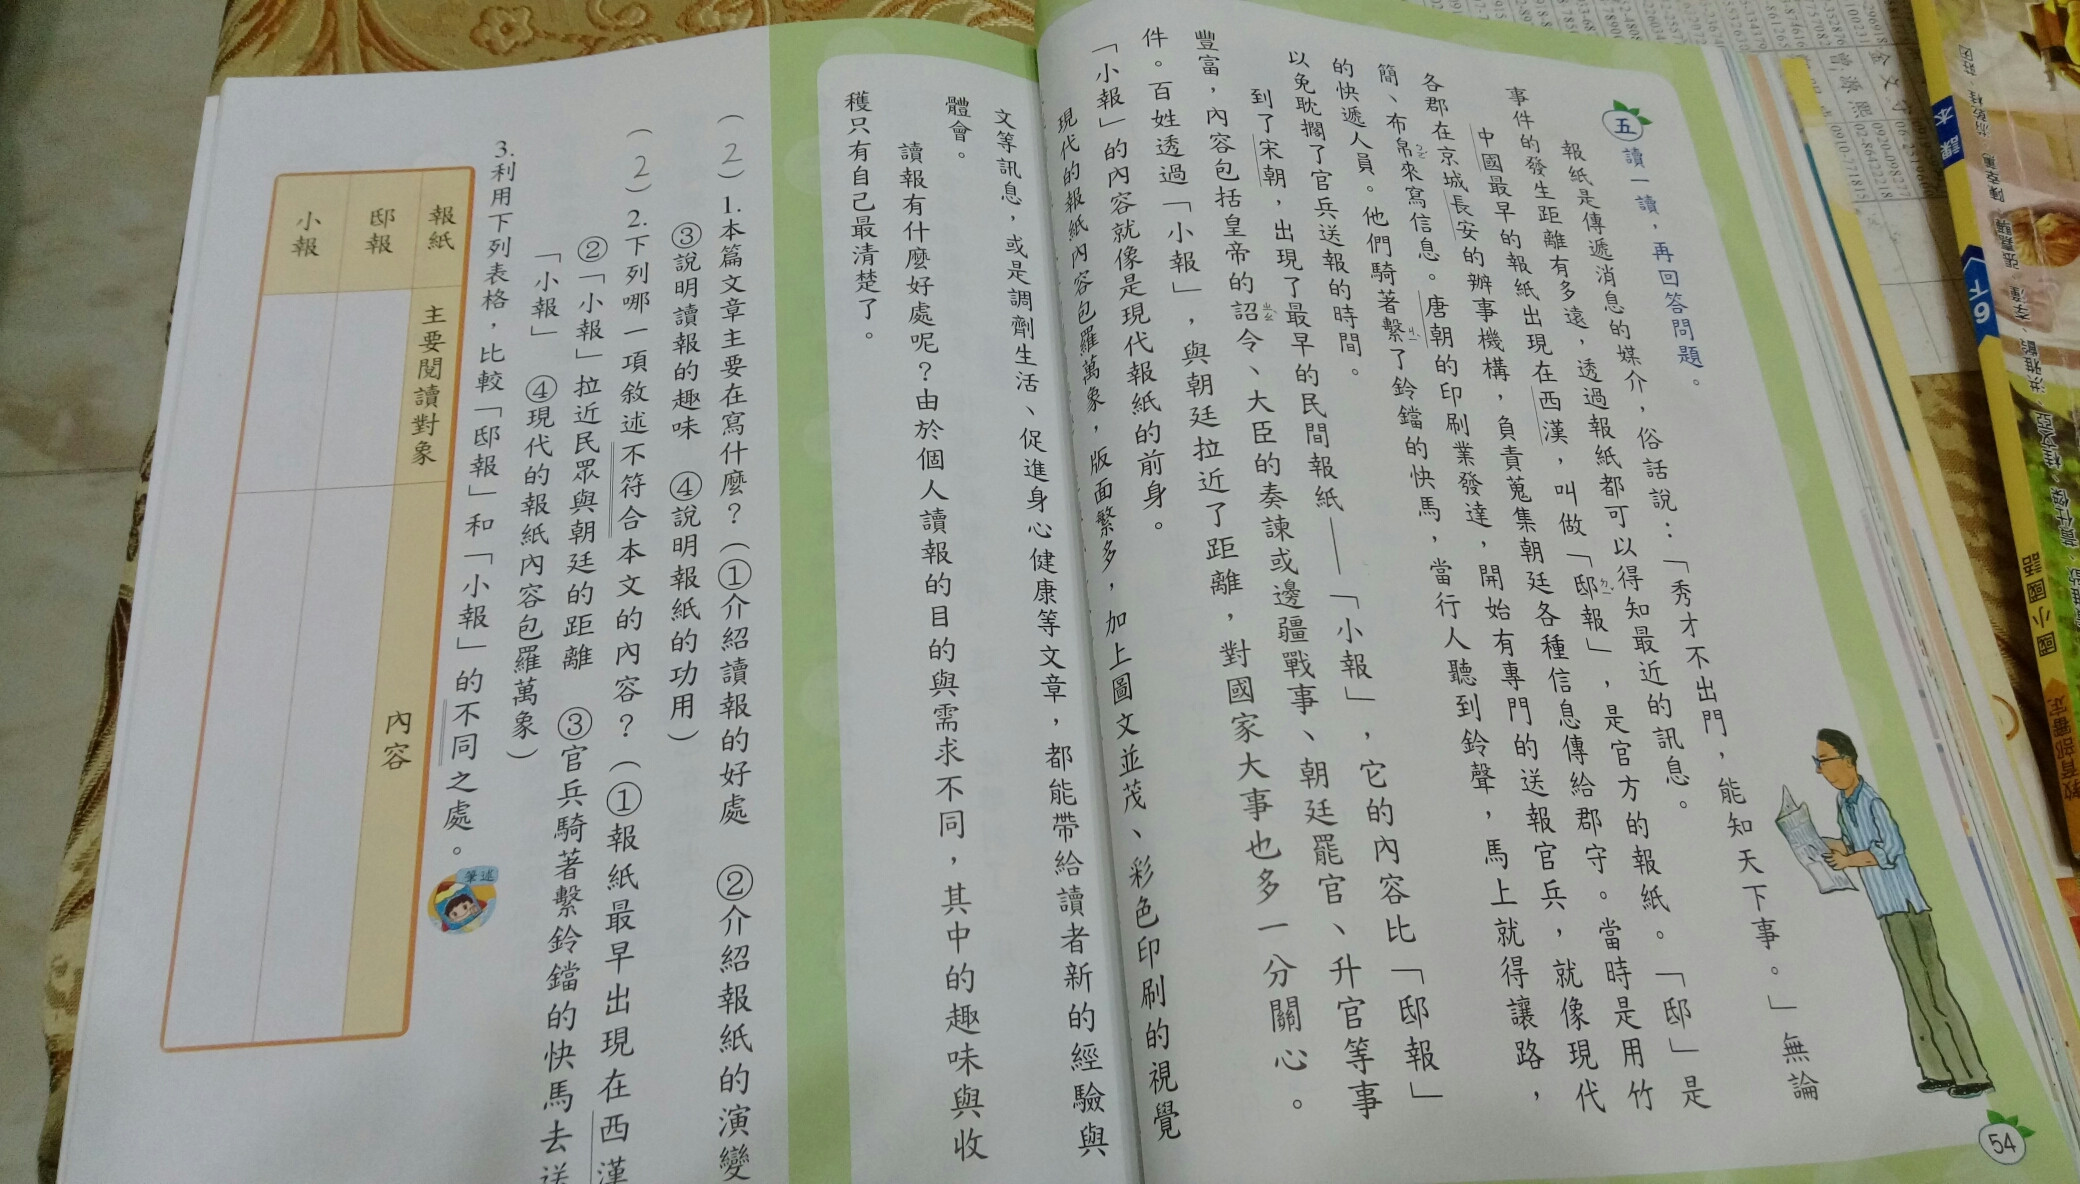 五 讀一讀，再回答問題。
報紙是傳遞消息的媒介，俗話說：「秀才不出門，能知天下事。」無論
事件的發生距離有多遠，透過報紙都可以得知最近的訊息。
中國最早的報紙出現在西漢，叫做「邸報」，是官方的報紙。「邸」是
各郡在京城長安的辦事機構，負責蒐集朝廷各種信息傳給郡守。當時是用竹
簡、布帛來寫信息。唐朝的印刷業發達，開始有專門的送報官兵，就像現代
的快遞人員。他們騎著繫了鈴鐺的快馬，當行人聽到鈴聲，馬上就得讓路，
以免耽擱了官兵送報的時間。
到了宋朝，出現了最早的民間報紙——「小報」，它的內容比「邸報」
豐富，內容包括皇帝的詔令、大臣的奏諫或邊疆戰事、朝廷罷官、升官等事
件。百姓透過「小報」，與朝廷拉近了距離，對國家大事也多一分關心。
「小報」的內容就像是現代報紙的前身。
現代的報紙內容包羅萬象，版面繁多，加上圖文並茂、彩色印刷的視覺
文等訊息，或是調劑生活、促進身心健康等文章，都能帶給讀者新的經驗與
體會。
讀報有什麼好處呢？由於個人讀報的目的與需求不同，其中的趣味與收
穫只有自己最清楚了。
（2）1.本篇文章主要在寫什麼？（①介紹讀報的好處 ②介紹報紙的演變
③說明讀報的趣味 ④說明報紙的功用）
（2）2.下列哪一項敘述不符合本文的內容？（①報紙最早出現在西漢
②「小報」拉近民眾與朝廷的距離 ③官兵騎著繫鈴鐺的快馬去送
「小報」 ④現代的報紙內容包羅萬象）
3.利用下列表格，比較「邸報」和「小報」的不同之處。
筆述
報紙 主要閱讀對象 內容
邸報
小報
54
課本
6下
國小國語
教育部審定